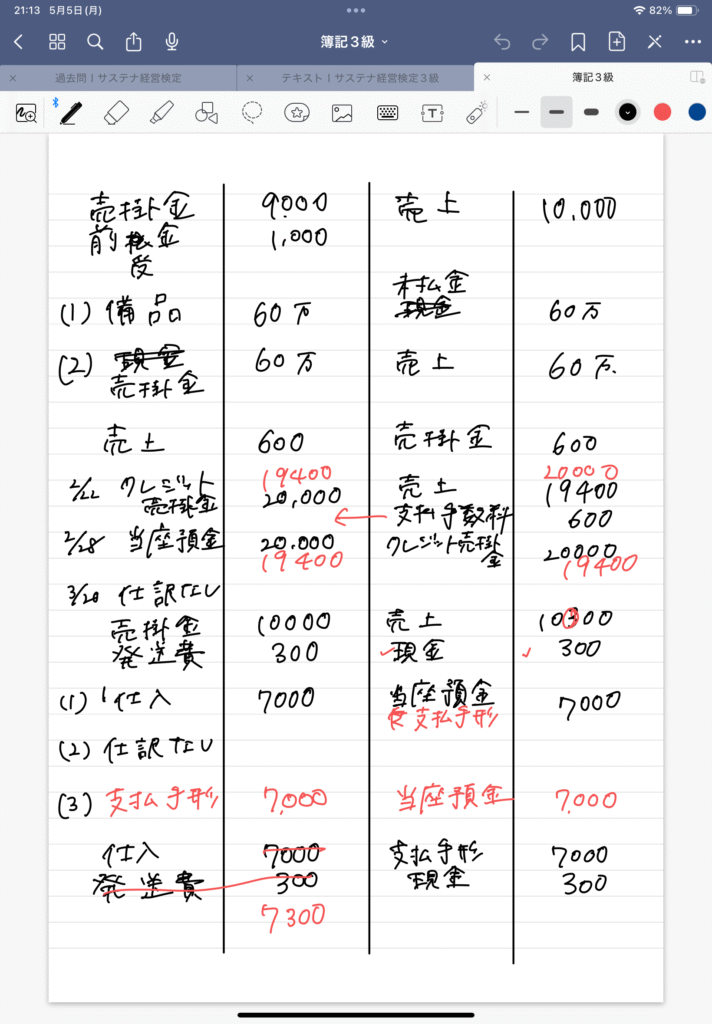 21:13 5月5日(月)
82%
簿記3級
過去問 I サステナ経営検定
テキスト I サステナ経営検定3級
簿記3級
売掛金 9,000 売上 10,000
前受金 1,000
未払金
(1) 備品 60万 現金 60万
(2) 現金 60万 売上 60万
売掛金
売上 600 売掛金 600
19400 20000
2/22 クレジット売掛金 20,000 売上 19400
← 支払手数料 600
2/28 当座預金 20,000 クレジット売掛金 20000
19400 19400
3/20 仕訳なし
売掛金 10000 売上 10300
発送費 300 ✓現金 ✓ 300
(1) 仕入 7000 当座預金 7000
支払手形
(2) 仕訳なし
(3) 支払手形 7,000 当座預金 7,000
仕入 7000 支払手形 7000
発送費 300 現金 300
7300